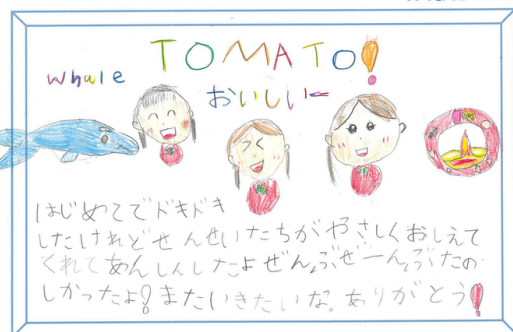 TOMATO!
whale
おいしいー
はじめてでドキドキ
したけれどせんせいたちがやさしくおしえて
くれてあんしんしたよぜんぶぜーんぶたの
しかったよ!またいきたいな。ありがとう!